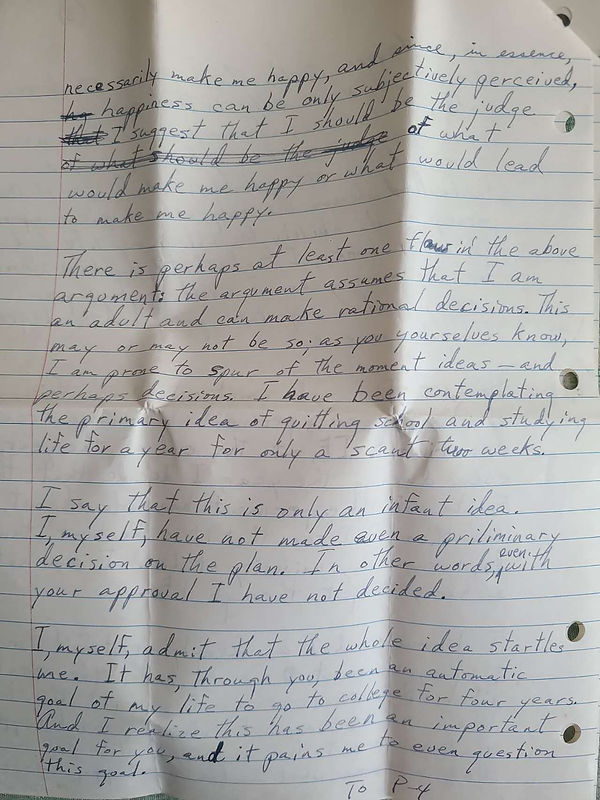 necessarily make me happy, and since, in essence,
happiness can be only subjectively perceived,
I suggest that I should be the judge
of what should be the judge of what
would make me happy or what would lead
to make me happy.
There is perhaps at least one flaw in the above
argument: the argument assumes that I am
an adult and can make rational decisions. This
may or may not be so; as you yourselves know,
I am prone to spur of the moment ideas — and
perhaps decisions. I have been contemplating
the primary idea of quitting school and studying
life for a year for only a scant two weeks.
I say that this is only an infant idea.
I, myself, have not made even a priliminary
decision on the plan. In other words, even with
your approval I have not decided.
I, myself, admit that the whole idea startles
me. It has, through you, been an automatic
goal of my life to go to college for four years.
And I realize this has been an important
goal for you, and it pains me to even question
this goal.
To P-4